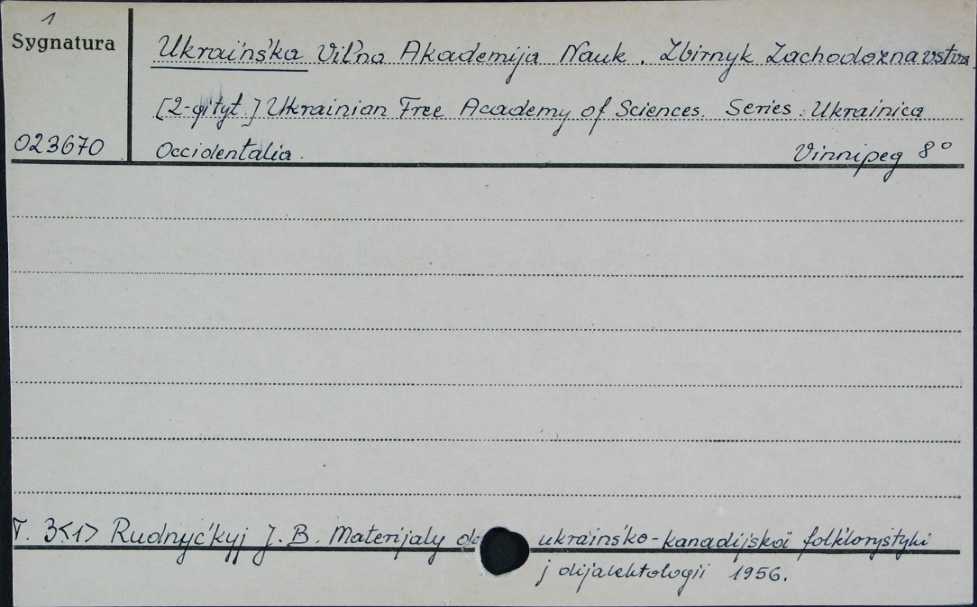 1
Sygnatura
Ukraïnśka Viľna Akademija Nauk. Zbirnyk Zachodoznavstva
[2-gi tyt.] Ukrainian Free Academy of Sciences. Series: Ukrainica
023670 Occidentalia. Vinnipeg 8°
T. 3<1> Rudnyćkyj J. B. Materijaly do ukraïnśko-kanadijśkoï folkłorystyki
j dijalektologii 1956.